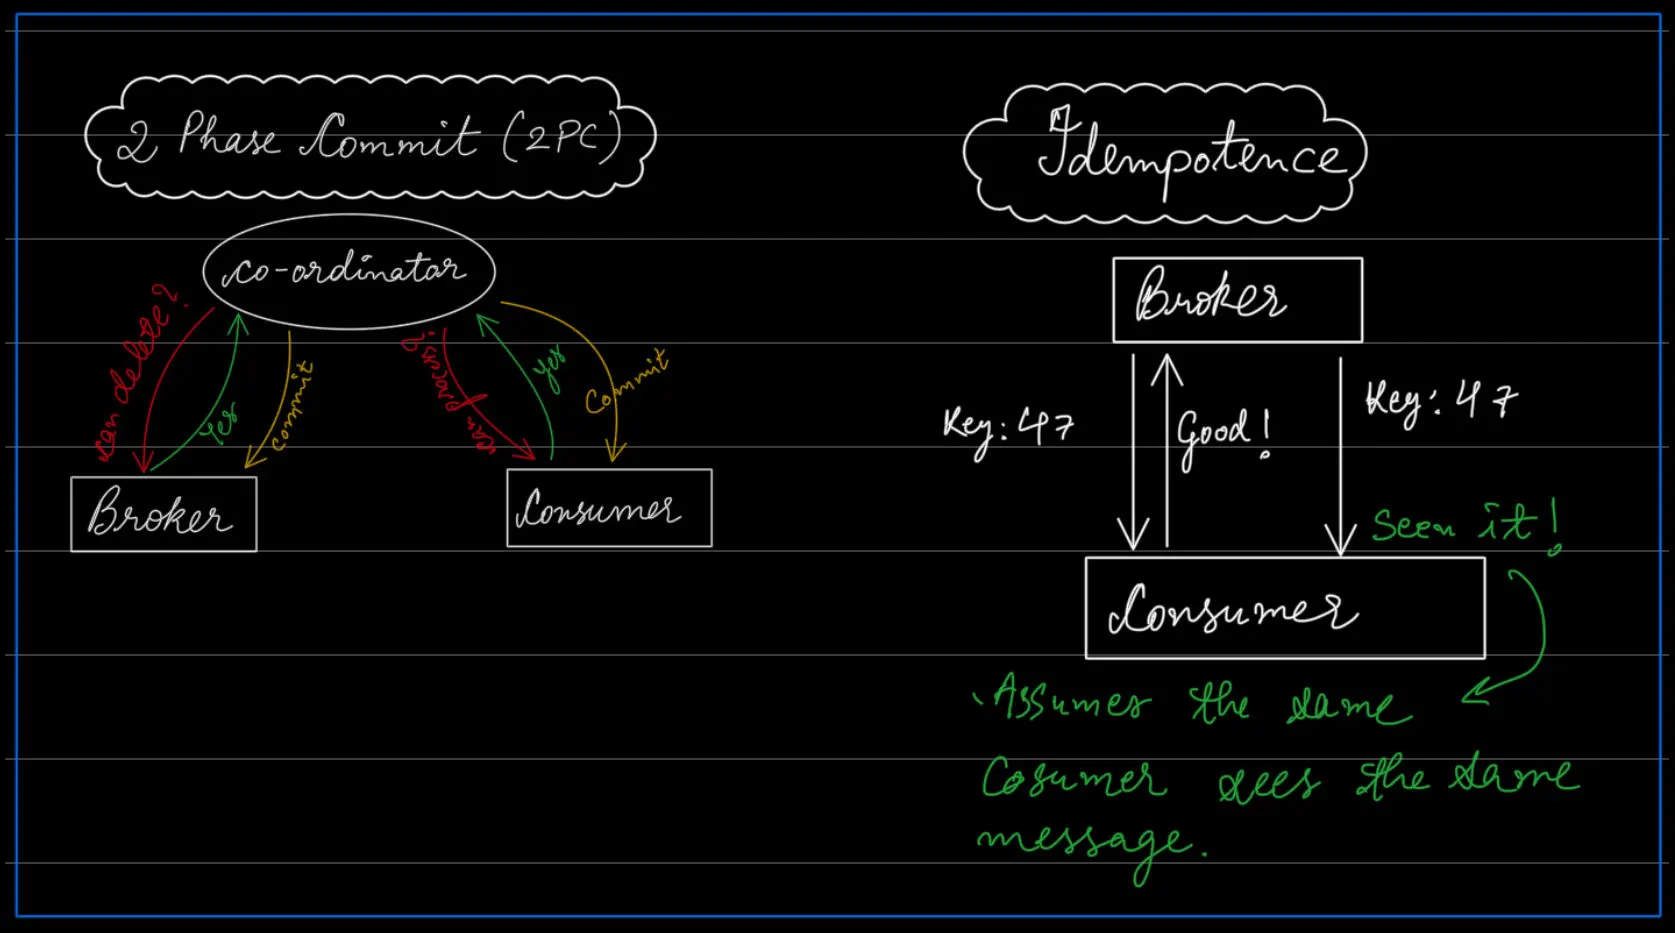 2 Phase Commit (2PC)
co-ordinator
can delete?
Yes
commit
can process?
Yes
Commit
Broker
Consumer
Idempotence
Broker
Key: 47
Good!
Key: 47
Seen it!
Consumer
Assumes the same
Cosumer sees the same
message.